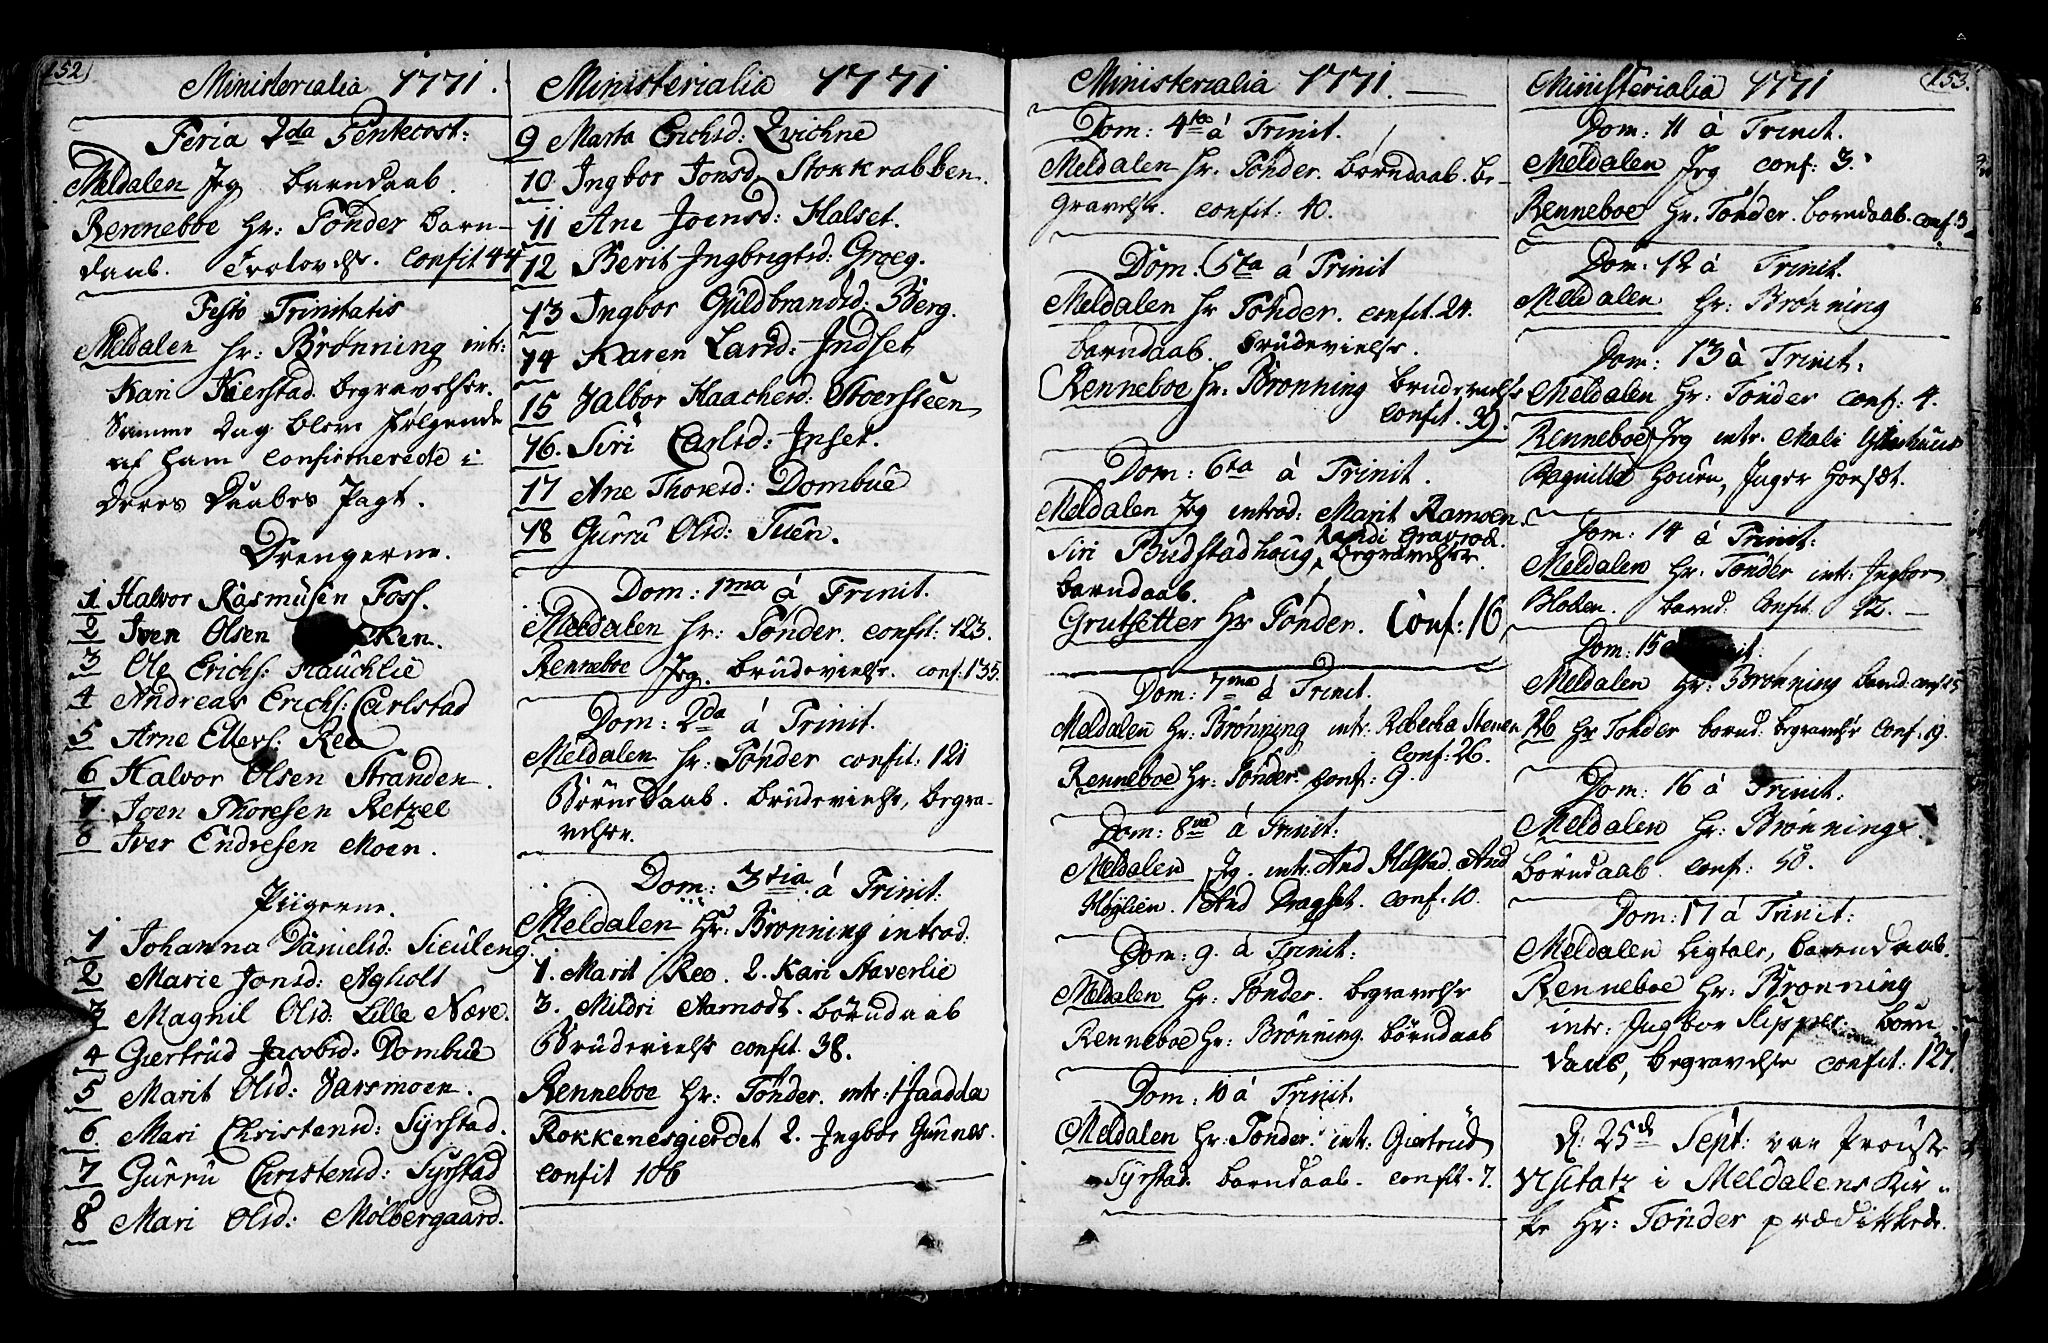 152
Ministerialia 1771.
Feria 2da Pentecost:
Meldalen Jeg barndaab.
Renneboe Hr: Tønder barn-
daab. Trolovelse. Confit 44
Festo Trinitatis
Meldalen Hr: Brønning intr:
Kari Kierstad begravelser.
Samme Dag blev følgende
af ham Confirmerede i
Deres Daabes Pagt.
Drengerne.
1 Halvor Rasmusen Foss.
2 Iven Olsen ken.
3 Ole Erichs: Hauchlie
4 Andreas Erichs: Carlstad
5 Arne Ellevs: Ree
6 Halvor Olsen Stranden.
7. Joen Thoresen Retzel
8 Iver Endresen Moen.
Piigerne.
1 Johanna Danielsd: Sieuleng.
2 Marie Jonsd: Agholt
3 Magnil Olsd: Lille Næve.
4 Giertrud Jacobsd: Dombue
5 Marit Olsd: Jarsmoen.
6. Mari Christensd: Syrstad.
7 Gurru Christensd: Syrstad
8 Mari Olsd: Mølbergaard.
Ministerialia 1771
9 Marta Erichsd: Qvichne
10 Ingbor Jonsd. Stokkrabben.
11 Ane Joensd: Halset.
12 Berit Ingbrigtsd: Groeg.
13 Ingbor Guldbrandsd: Berg.
14 Karen Land: Indset
15 Jalbor Haachensd: Stoersteen
16. Siri Carlsd: Inset.
17 Ane Thoresd: Dombue
18 Gurru Olsd: Tuen.
Dom: 1ma á Trinit.
Meldalen Hr: Tønder. Confit: 123.
Renneboe Jeg. brudevielse. conf: 135.
Dom: 2da á Trinit.
Meldalen Hr: Tønder confit: 121
Børnedaab. brudevielse, begra-
velser.
Dom: 3tia á Trinit:
Meldalen Hr: Brønning introd:
1. Marit Ree 2. Kari Staverlie
3. Mildri Aarmodt. børndaab
Brudevielse confit. 38.
Renneboe Hr: Tønder. intr: 1 Jaadda
Rokkenesgierdet 2. Ingbor Gunnes.
Confit 106
Ministerialia 1771.
Dom: 4ta á Trinit.
Meldalen Hr. Tønder. børndaab. be-
gravelse. confit: 40.
Dom. 5ta á Trinit
Meldalen Hr Tønder. confit. 24.
barndaab. brudevielse.
Renneboe Hr: Brønning brudevielse
confit. 39.
Dom: 6ta á Trinit.
Meldalen Jeg introd: Marit Ramoen.
Randi Gravrod.
Siri Budstadhoug, begravelser.
barndaab.
Grutsetter Hr Tønder. Conf: 16
Dom: 7ma á Trinit.
Meldalen Hr: Brønning intr: Rebecha Stenen
Conf: 26.
Renneboe Hr: Tønder. Conf: 9
Dom: 8va á Trinit:
Meldalen Jeg. intr: And Hilstad. And
Høglien. 1 And Dragset. conf. 10.
Dom: 9. á Trinit:
Meldalen Hr: Tønder. begravelse
Renneboe Hr: Brønning. børndaab
Dom: 10 á Trinit.
Meldalen Hr: Tønder. intr: Giertrud
Syrstad. barndaab. confit. 7.
153.
Ministerialia 1771
Dom: 11 á Trinit.
Meldalen Jeg conf: 3.
Renneboe Hr. Tønder. børndaab. conf. 3
Dom: 12 á Trinit.
Meldalen Hr: Brønning
Dom: 13 á Trinit:
Meldalen Hr: Tønder conf: 4.
Renneboe Jeg intr. Mali
Ragnild Houen, Inger Horset.
Dom: 14 á Trinit:
Meldalen Hr: Tønder intr: Ingbor
Bloken. barnd. Confit. 12.
Dom: 15 nit:
Meldalen Hr: Brønning barnd: conf: 25
Rb Hr Tønder barnd: begravelse Conf. 19.
Dom: 16 á Trinit:
Meldalen Hr: Brønning.
Børndaab. conf: 50.
Dom: 17 á Trinit:
Meldalen Ligtale, barndaab.
Renneboe Hr: Brønning
intr: Ingbor Skipper børn
daab, begravelse confit: 127.
D: 25de Sept: var Provste
Visitatz i Meldalens Kir-
ke Hr: Tønder prædikkede.